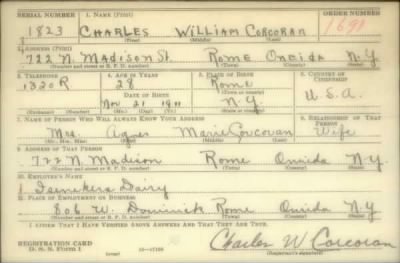 SERIAL NUMBER 1. NAME (Print) ORDER NUMBER
1823 CHARLES WILLIAM CORCORAN 1691
(First) (Middle) (Last)
2. ADDRESS (Print)
722 N. MADISON St. ROME ONEIDA N.Y.
(Number and street or R. F. D. number) (Town) (County) (State)
3. TELEPHONE 4. AGE IN YEARS 5. PLACE OF BIRTH 6. COUNTRY OF CITIZENSHIP
1320 R 29 Rome
DATE OF BIRTH (Town or county) U.S.A.
Nov 21 1911 N.Y.
(Exchange) (Number) (Mo.) (Day) (Yr.) (State or country)
7. NAME OF PERSON WHO WILL ALWAYS KNOW YOUR ADDRESS 8. RELATIONSHIP OF THAT PERSON
Mrs. Agnes Marie Corcoran Wife
(Mr., Mrs., Miss) (First) (Middle) (Last)
9. ADDRESS OF THAT PERSON
722 N. Madison Rome Oneida N.Y.
(Number and street or R. F. D. number) (Town) (County) (State)
10. EMPLOYER'S NAME
Dairy
11. PLACE OF EMPLOYMENT OR BUSINESS
806 W. Dominick Rome Oneida N.Y.
(Number and street or R. F. D. number) (Town) (County) (State)
I AFFIRM THAT I HAVE VERIFIED ABOVE ANSWERS AND THAT THEY ARE TRUE.
REGISTRATION CARD
D. S. S. Form 1 Charles W. Corcoran
(over) (Registrant's signature)